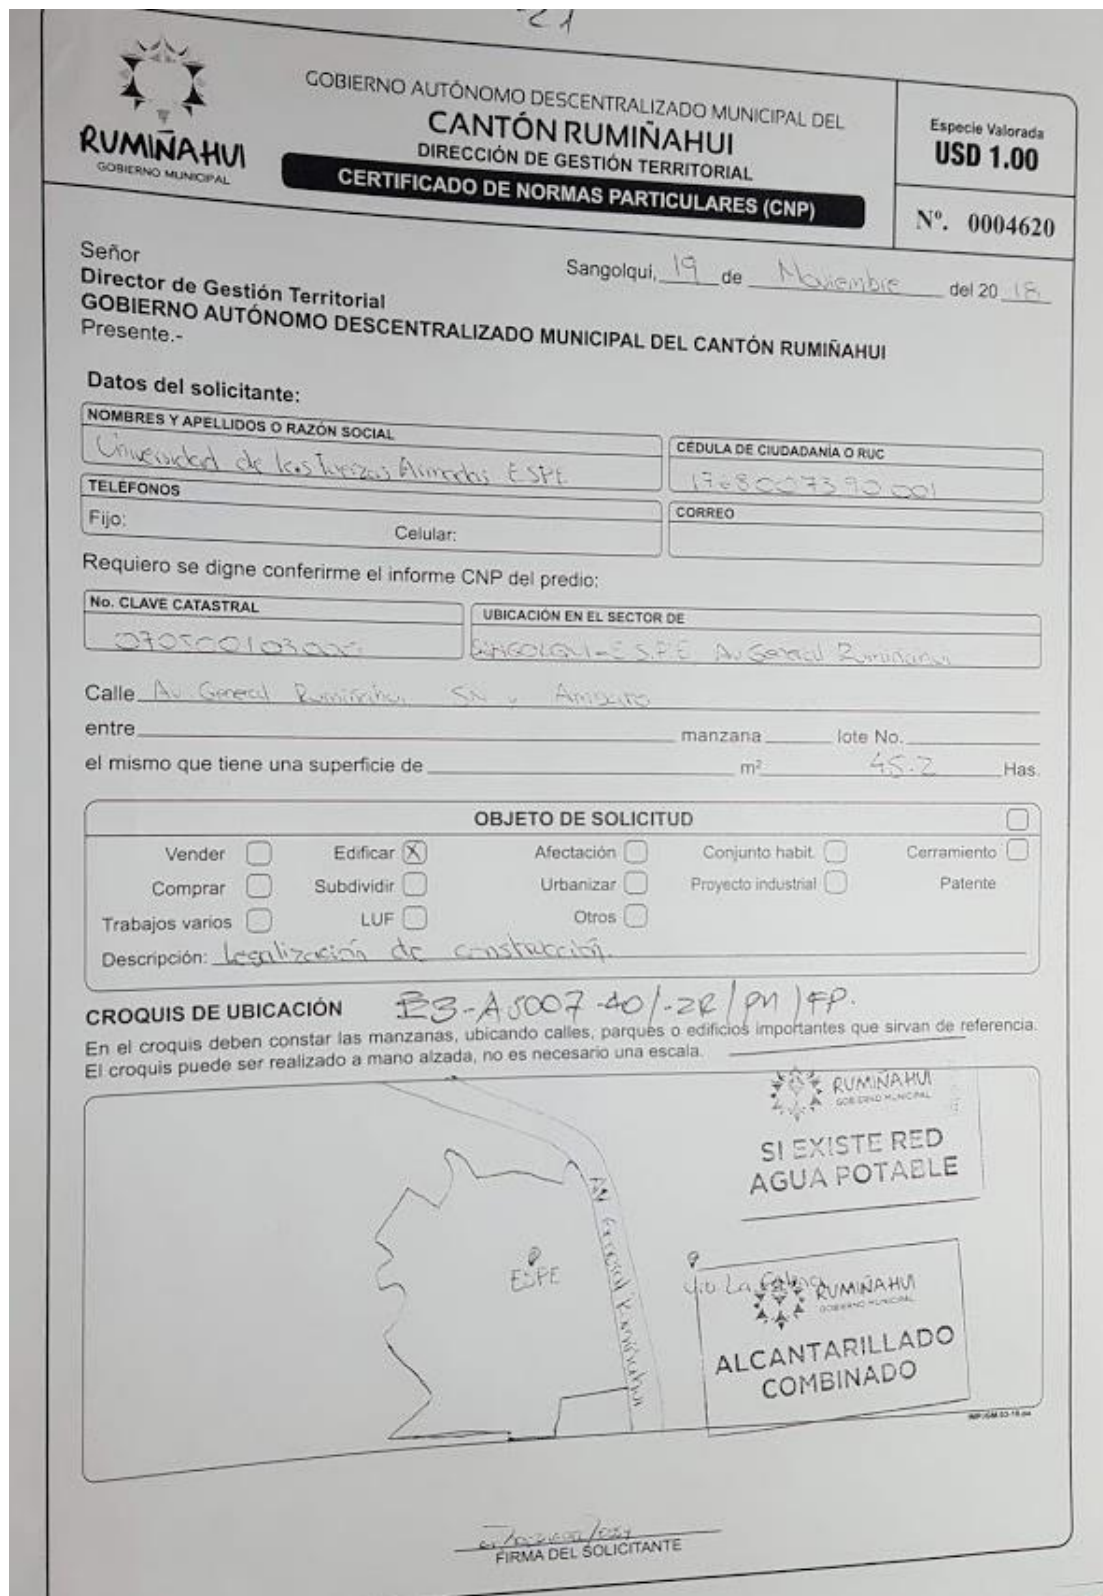 21
RUMIÑAHUI
GOBIERNO MUNICIPAL
GOBIERNO AUTÓNOMO DESCENTRALIZADO MUNICIPAL DEL
CANTÓN RUMIÑAHUI
DIRECCIÓN DE GESTIÓN TERRITORIAL
CERTIFICADO DE NORMAS PARTICULARES (CNP)
Especie Valorada
USD 1.00
Nº. 0004620
Sangolqui, 19 de Noviembre del 2018
Señor
Director de Gestión Territorial
GOBIERNO AUTÓNOMO DESCENTRALIZADO MUNICIPAL DEL CANTÓN RUMIÑAHUI
Presente.-
Datos del solicitante:
NOMBRES Y APELLIDOS O RAZÓN SOCIAL
Universidad de las Fuerzas Armadas ESPE
CÉDULA DE CIUDADANÍA O RUC
1768007390001
TELÉFONOS
Fijo: Celular:
CORREO
Requiero se digne conferirme el informe CNP del predio:
No. CLAVE CATASTRAL
UBICACIÓN EN EL SECTOR DE
SANGOLQUI-E.S.P.E Av General Rumiñahui
Calle Av General Rumiñahui SN y Ambato
entre manzana lote No.
el mismo que tiene una superficie de m² 45.2 Has.
OBJETO DE SOLICITUD
Vender Edificar X Afectación Conjunto habit. Cerramiento
Comprar Subdividir Urbanizar Proyecto industrial Patente
Trabajos varios LUF Otros
Descripción: Legalización de construcción.
CROQUIS DE UBICACIÓN
En el croquis deben constar las manzanas, ubicando calles, parques o edificios importantes que sirvan de referencia.
El croquis puede ser realizado a mano alzada, no es necesario una escala.
RUMIÑAHUI
GOBIERNO MUNICIPAL
SI EXISTE RED
AGUA POTABLE
Av General Rumiñahui
ESPE
RUMIÑAHUI
GOBIERNO MUNICIPAL
ALCANTARILLADO
COMBINADO
FIRMA DEL SOLICITANTE